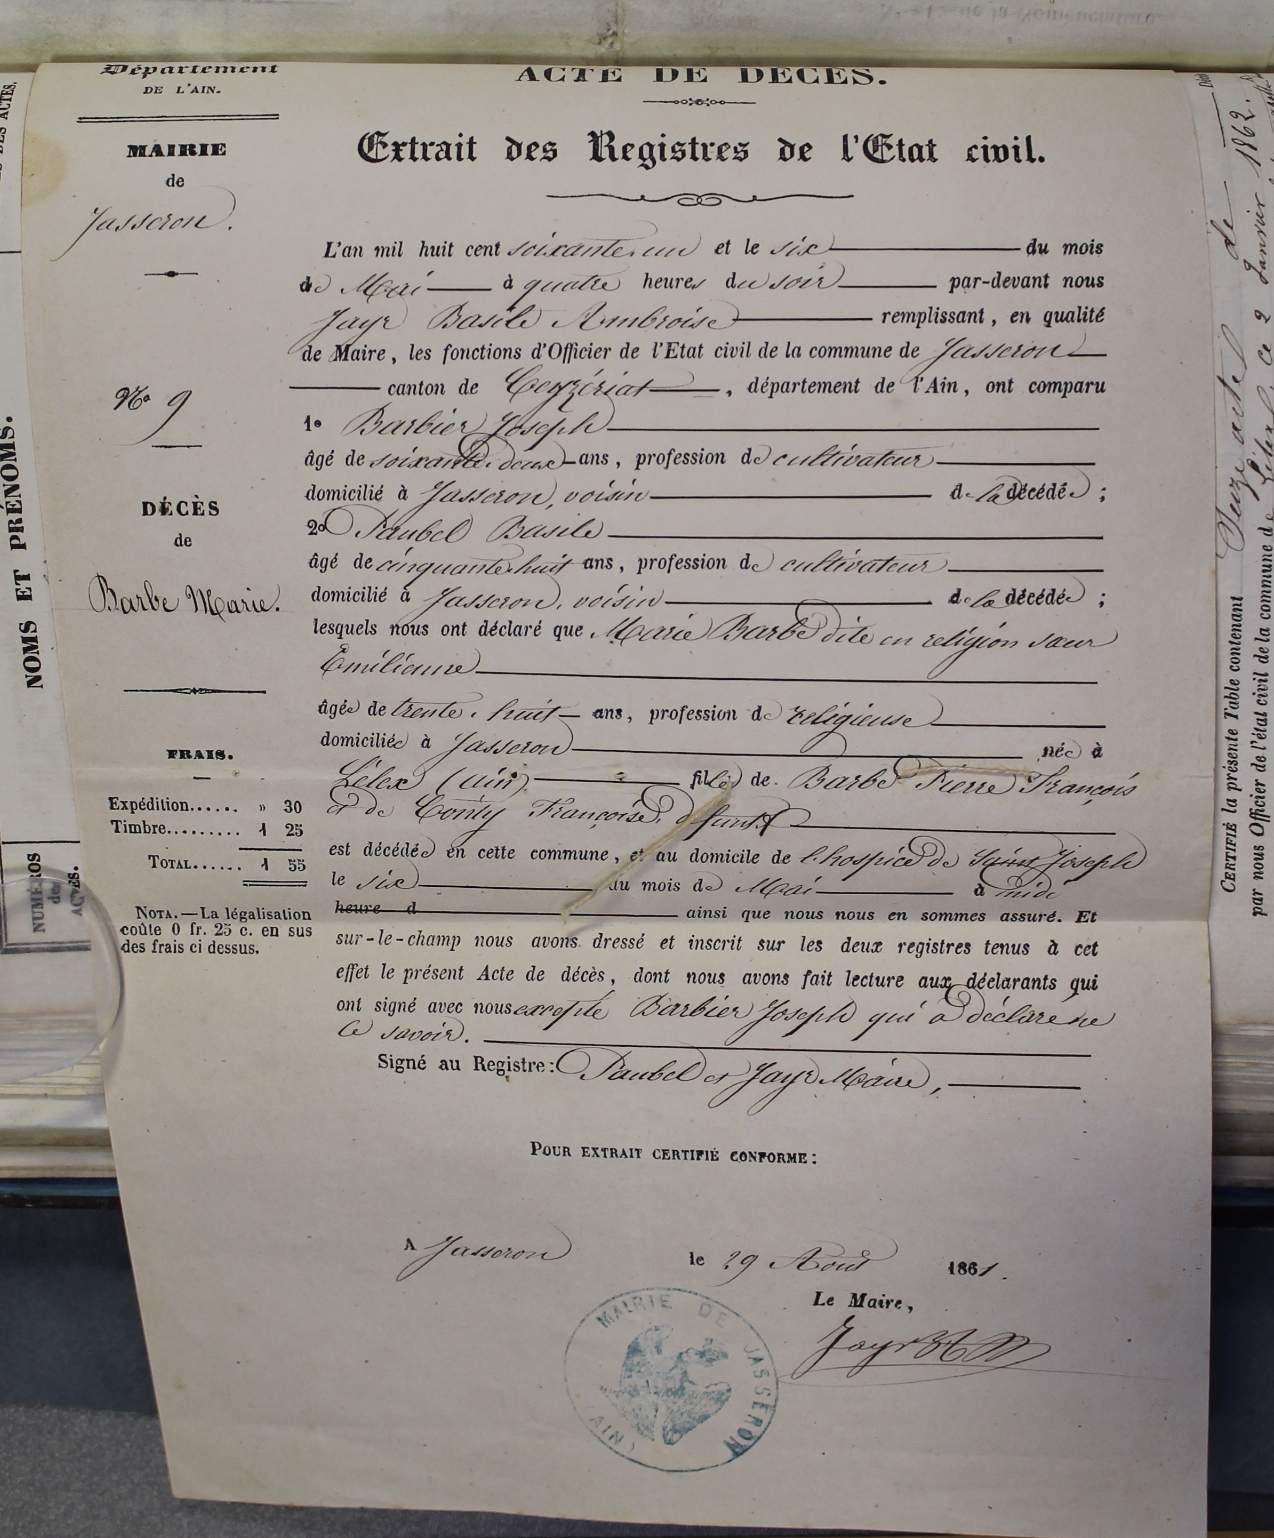 Département
DE L'AIN.
MAIRIE
de
Jasseron.
No 9
DÉCÈS
de
Barbe Marie.
FRAIS.
Expédition...... » 30
Timbre......... 1 25
TOTAL...... 1 55
NOTA.—La légalisation
coûte 0 fr. 25 c. en sus
des frais ci dessus.
ACTE DE DÉCÈS.
Extrait des Registres de l'Etat civil.
L'an mil huit cent soixante-un et le six du mois
de Mai à quatre heures du soir par-devant nous
Jayr Basile Ambroise remplissant, en qualité
de Maire, les fonctions d'Officier de l'Etat civil de la commune de Jasseron
canton de Ceyzériat, département de l'Ain, ont comparu
1º Barbier Joseph
âgé de soixante-deux ans, profession de cultivateur
domicilié à Jasseron, voisin de la décédée;
2º Paubel Basile
âgé de cinquante-huit ans, profession de cultivateur
domicilié à Jasseron, voisin de la décédée;
lesquels nous ont déclaré que Marie Barbe dite en religion sœur
Emilienne
âgée de trente-huit ans, profession de religieuse
domiciliée à Jasseron née à
Lélex (ain) fille de Barbe Pierre François
et de Conty Françoise, défunts
est décédée en cette commune, et au domicile de l'hospice de Saint Joseph
le six du mois de Mai à midi
heure d ainsi que nous nous en sommes assuré. Et
sur-le-champ nous avons dressé et inscrit sur les deux registres tenus à cet
effet le présent Acte de décès, dont nous avons fait lecture aux déclarants qui
ont signé avec nous excepté Barbier Joseph qui a déclaré ne
le savoir.
Signé au Registre: Paubel et Jayr Maire,
POUR EXTRAIT CERTIFIÉ CONFORME:
A Jasseron le 29 Août 1861.
Le Maire,
Jayr
MAIRIE DE JASSERON
(AIN)
NOMS ET PRÉNOMS.
NUMÉROS
des
ACTES.
DES ACTES.
CERTIFIÉ la présente Table contenant Onze actes de
par nous Officier de l'état civil de la commune de Lélex, ce 2 Janvier 1862.